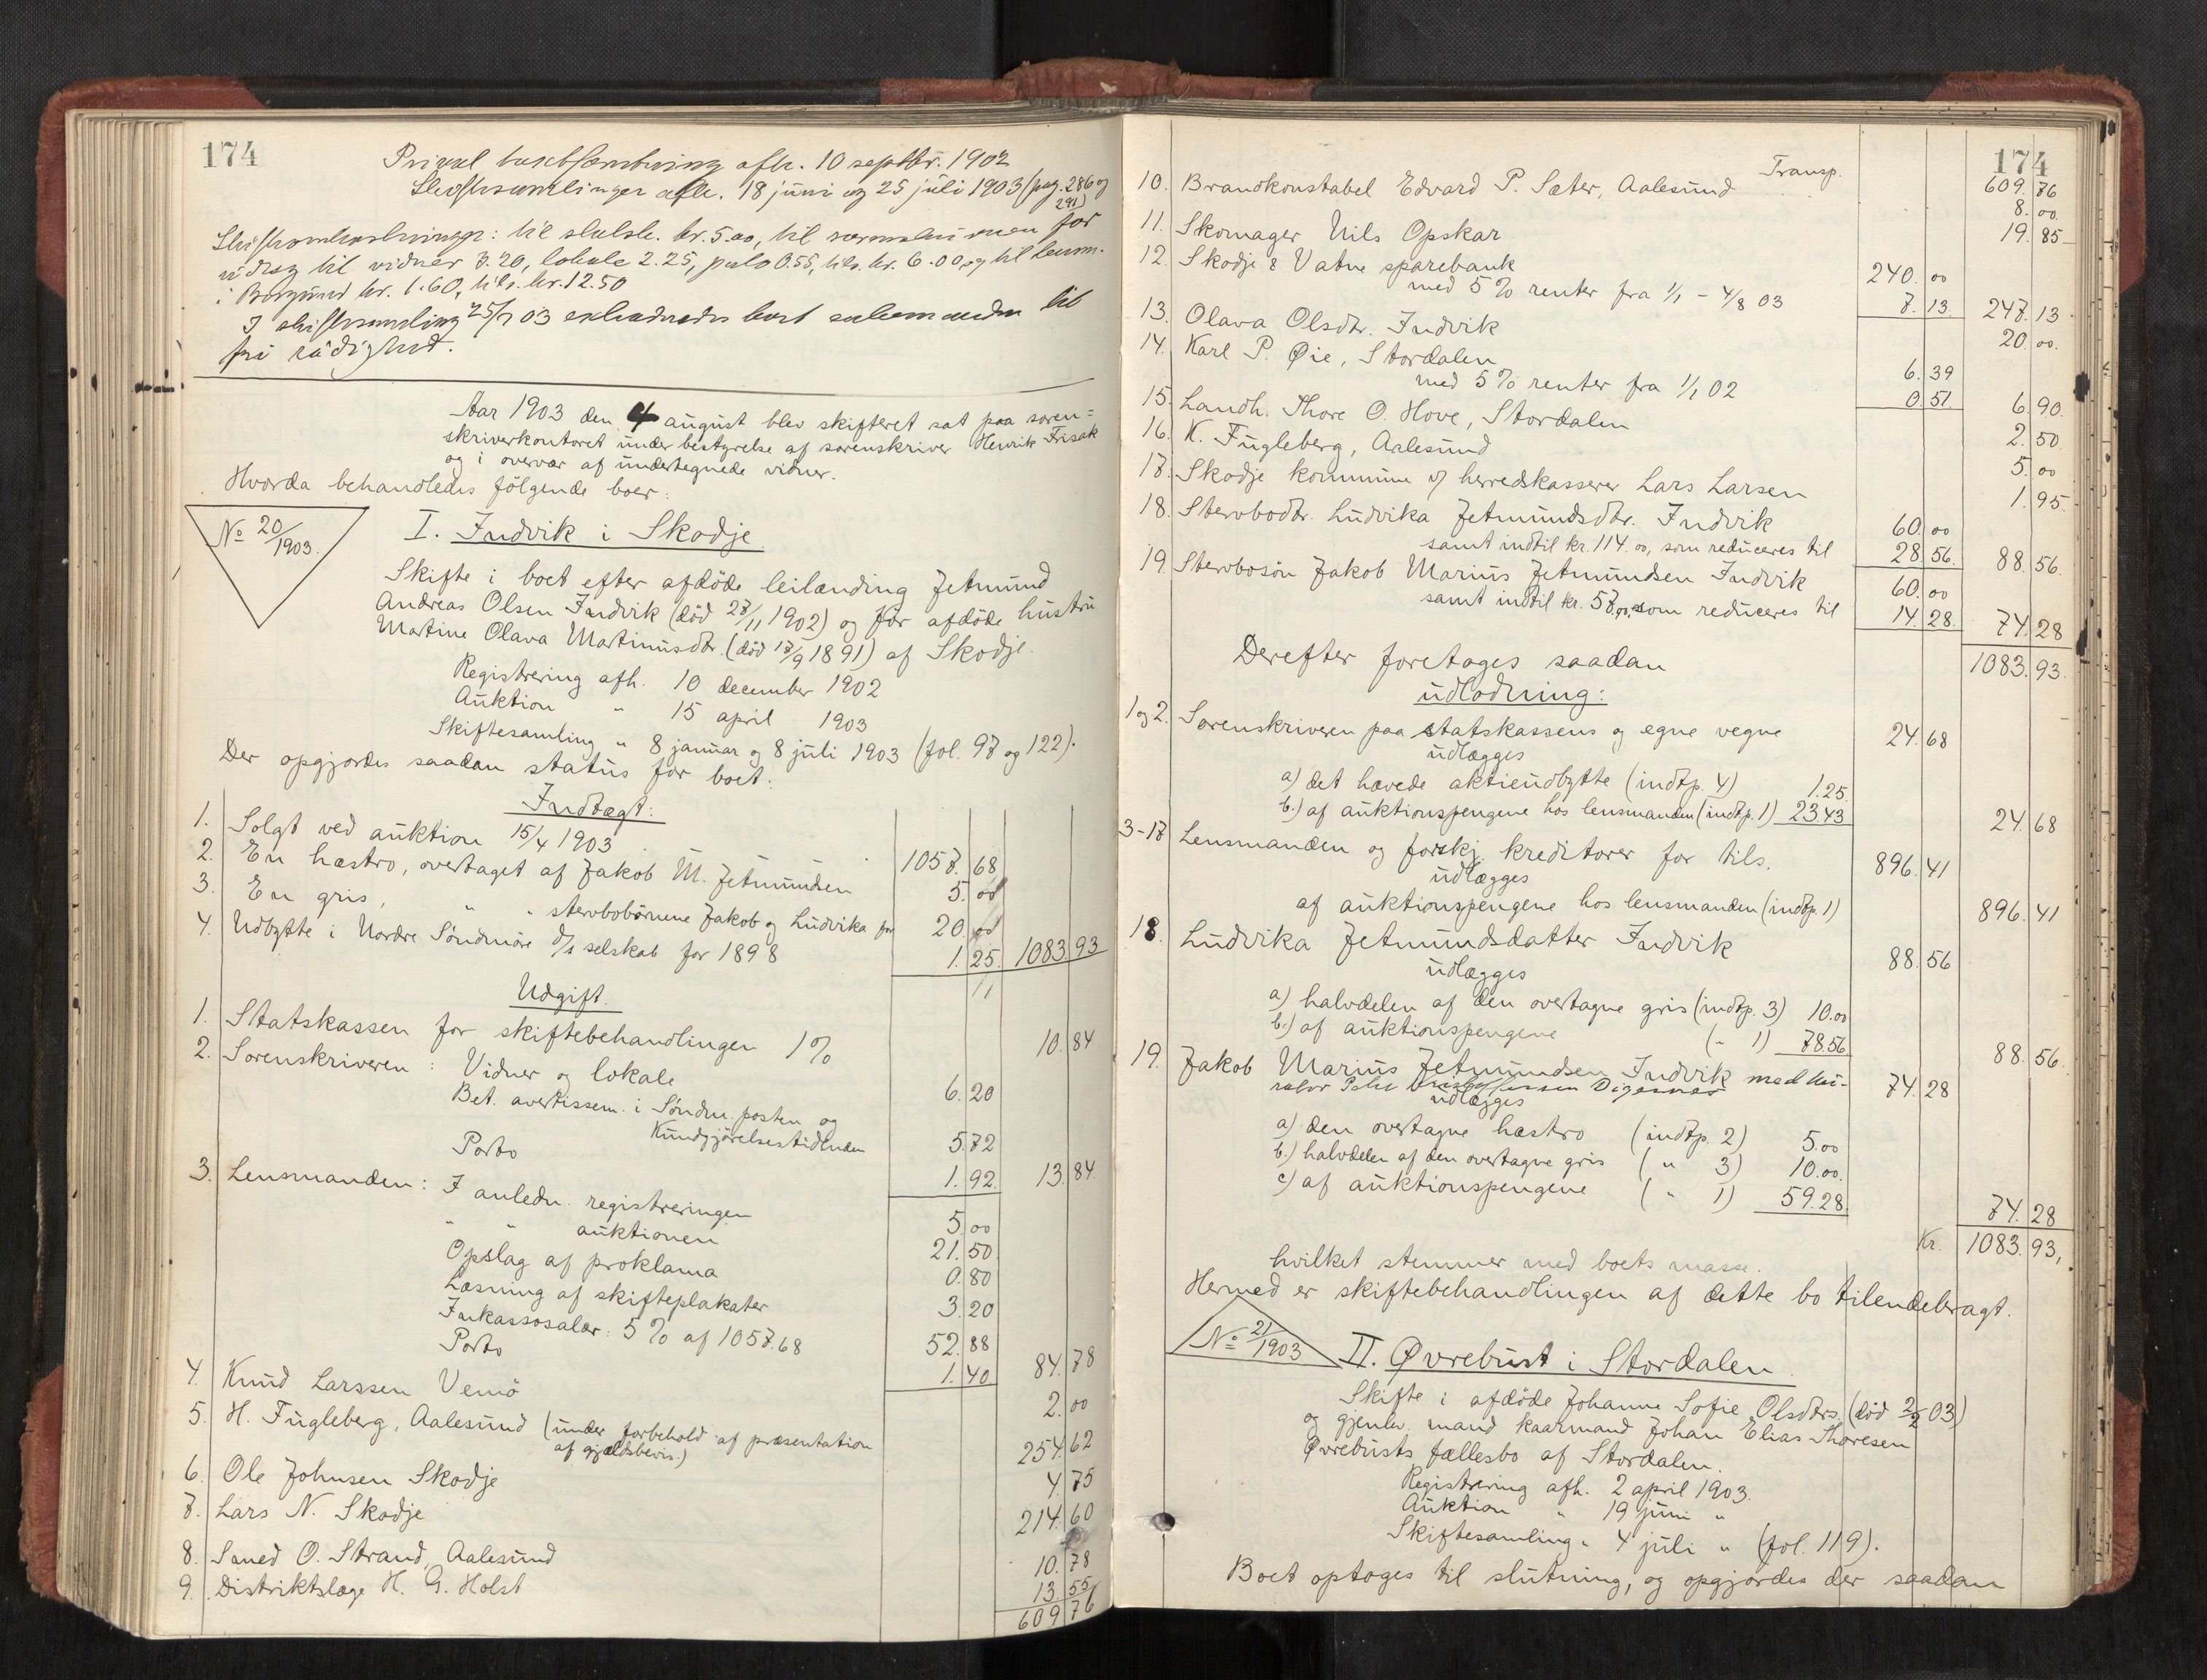 174
Privat bostyrelse afh. 10 septbr. 1902
Skiftesamlinger afh. 18 juni og 25 juli 1903 (pag. 286 og 291)
Skifteomkostninger: til statsk. kr. 5.00, til sorenskriveren for
til vidner 3.20, lokale 2.25, porto 0.55, tils. kr. 6.00 og til lensm.
i Borgund kr. 1.60, tils. kr. 12.50
I skiftesamling 25/7 03 boet til
fri raadighed.
Aar 1903 den 4 august blev skifteret sat paa soren=
skriverkontoret under bestyrelse af sorenskriver Henrik Frisak
og i overvær af undertegnede vidner.
Hvorda behandledes følgende boer:
No 20/1903.
I. Indvik i Skodje
Skifte i boet efter afdöde leilænding Jetmund
Andreas Olsen Indvik (död 27/11 1902) og før afdöde hustru
Martine Olava Martinusdtr. (död 17/9 1891) af Skodje.
Registrering afh. 10 december 1902
Auktion " 15 april 1903
Skiftesamling " 8 januar og 8 juli 1903 (fol. 97 og 122).
Der opgjordes saadan status for boet:
Indtægt:
1. Solgt ved auktion 15/4 1903 1057.68
2. En hæstro, overtaget af Jakob M. Jetmundsen 5.00
3. En gris, " " sterbobørnene Jakob og Ludvika for 20.00
4. Udbytte i Nordre Söndmöre d/s selskab for 1898 1.25 1083.93
Udgift.
1. Statskassen for skiftebehandlingen 1% 10.84
2. Sorenskriveren: Vidner og lokale 6.20
Bet. avertissem. i Söndm. posten og
Kundgjörelsestidenden 5.72
Porto 1.92. 13.84
3. Lensmanden: I anledn. registreringen 5.00
" " auktionen 21.50
Opslag af proklama 0.80
Læsning af skifteplakater 3.20
Inkassosalær: 5% af 1057.68 52.88
Porto 1.40 84.78
4. Knud Larssen Vemö 2.00
5. H. Fugleberg, Aalesund (under forbehold af præsentation
af gjældsbevis.) 254.62
6. Ole Johnsen Skodje 4.75
7. Lars N. Skodje 214.60
8. Smed O. Strand, Aalesund 10.78
9. Distriktslæge H. G. Holst 13.55
609.76
174
Transp. 609.76
10. Brandkonstabel Edvard P. Sæter, Aalesund 8.00
11. Skomager Nils Opskar 19.85
12. Skodje & Vatne sparebank 240.00
med 5% renter fra 1/1 - 4/8 03 7.13. 247.13
13. Olava Olsdtr. Indvik 20.00.
14. Karl P. Øie, Stordalen 6.39
med 5% renter fra 1/1 02 0.51. 6.90.
15. Landh. Thore O. Hove, Stordalen 2.50
16. K. Fugleberg, Aalesund 5.00
17. Skodje kommune v/ herredskasserer Lars Larsen 1.95
18. Sterbodtr. Ludvika Jetmundsdtr. Indvik 60.00
samt indtil kr. 114.00, som reduceres til 28.56. 88.56.
19. Sterbosön Jakob Marius Jetmundsen Indvik 60.00
samt indtil kr. 57.00, som reduceres til 14.28. 74.28
1083.93.
Derefter foretoges saadan
udlodning:
1 og 2. Sorenskriveren paa statskassens og egne vegne 24.68
udlægges
a) det hævede aktieudbytte (indtp. 4) 1.25.
b.) af auktionspengene hos lensmanden (indtp. 1) 23.43 24.68
3-17 Lensmanden og forskj. kreditorer for tils. 896.41
udlægges
af auktionspengene hos lensmanden (indtp. 1) 896.41
18. Ludvika Jetmundsdatter Indvik 88.56
udlægges
a) halvdelen af den overtagne gris (indtp. 3) 10.00
b.) af auktionspengene (" 1) 78.56 88.56.
19. Jakob Marius Jetmundsen Indvik med ku-
rator Peter Kristoffersen Digernes 74.28
udlægges
a) den overtagne hæstro (indtp. 2) 5.00
b.) halvdelen af den overtagne gris (" 3) 10.00.
c) af auktionspengene (" 1) 59.28. 74.28
Kr. 1083.93,
hvilket stemmer med boets masse.
Hermed er skiftebehandlingen af dette bo tilendebragt.
No 21/1903
II. Øvrebust i Stordalen.
Skifte i afdöde Johanne Sofie Olsdtrs. (död 2/2 03)
og gjenlev. mand kaarmand Johan Elias Thoresen
Øvrebusts fællesbo af Stordalen.
Registrering afh. 2 april 1903.
Auktion " 19 juni "
Skiftesamling " 4 juli " (fol. 119).
Boet optoges til slutning, og opgjordes der saadan